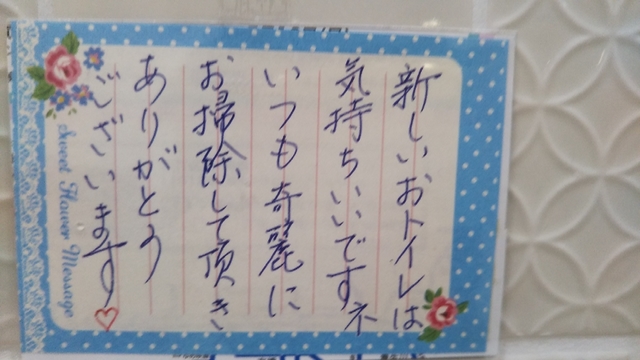 新しいおトイレは
気持ちいいですネ
いつも奇麗に
お掃除して頂き
ありがとう
ございます♡
Sweet Flower Message